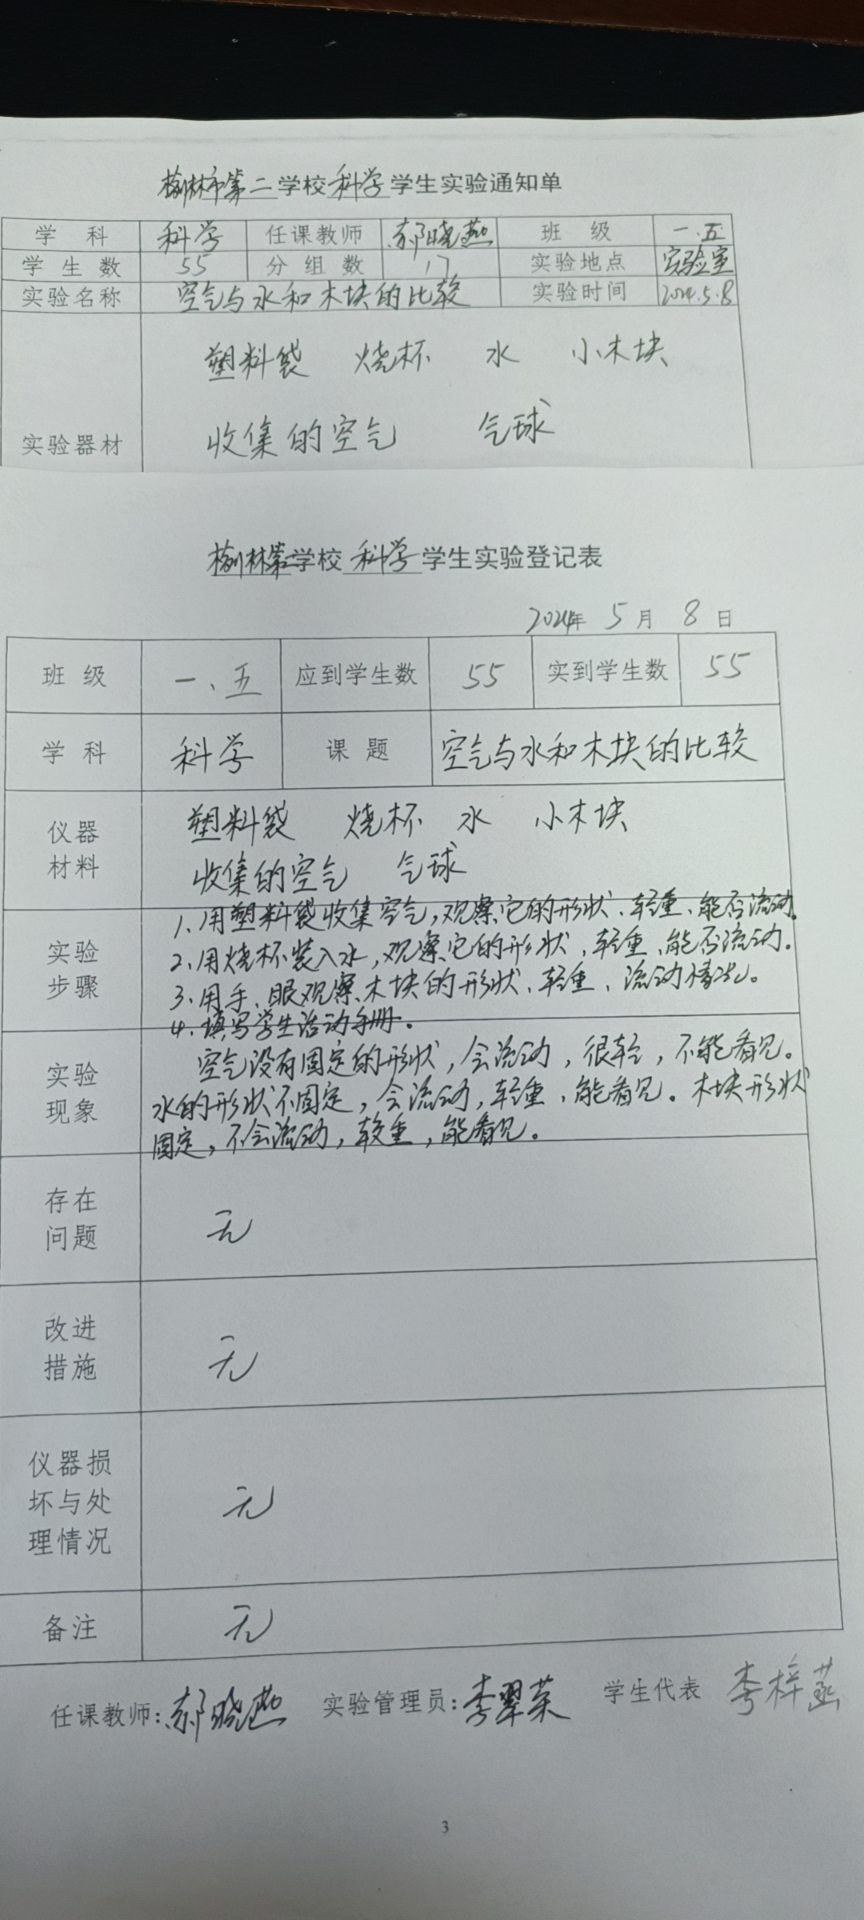 榆林市第二学校科学学生实验通知单
学科 科学 任课教师 郝晓燕 班级 一.五
学生数 55 分组数 17 实验地点 实验室
实验名称 空气与水和木块的比较 实验时间 2024.5.8
塑料袋 烧杯 水 小木块
实验器材 收集的空气 气球
榆林第二学校科学学生实验登记表
2024年5月8日
班级 一、五 应到学生数 55 实到学生数 55
学科 科学 课题 空气与水和木块的比较
仪器材料 塑料袋 烧杯 水 小木块
收集的空气 气球
实验步骤 1.用塑料袋收集空气,观察它的形状、轻重、能否流动。
2.用烧杯装入水,观察它的形状、轻重、能否流动。
3.用手、眼观察木块的形状、轻重、流动情况。
4.填写学生活动手册。
实验现象 空气没有固定的形状,会流动,很轻,不能看见。
水的形状不固定,会流动,轻重,能看见。木块形状
固定,不会流动,较重,能看见。
存在问题 无
改进措施 无
仪器损坏与处理情况 无
备注 无
任课教师:郝晓燕 实验管理员:李翠荣 学生代表 李梓
3